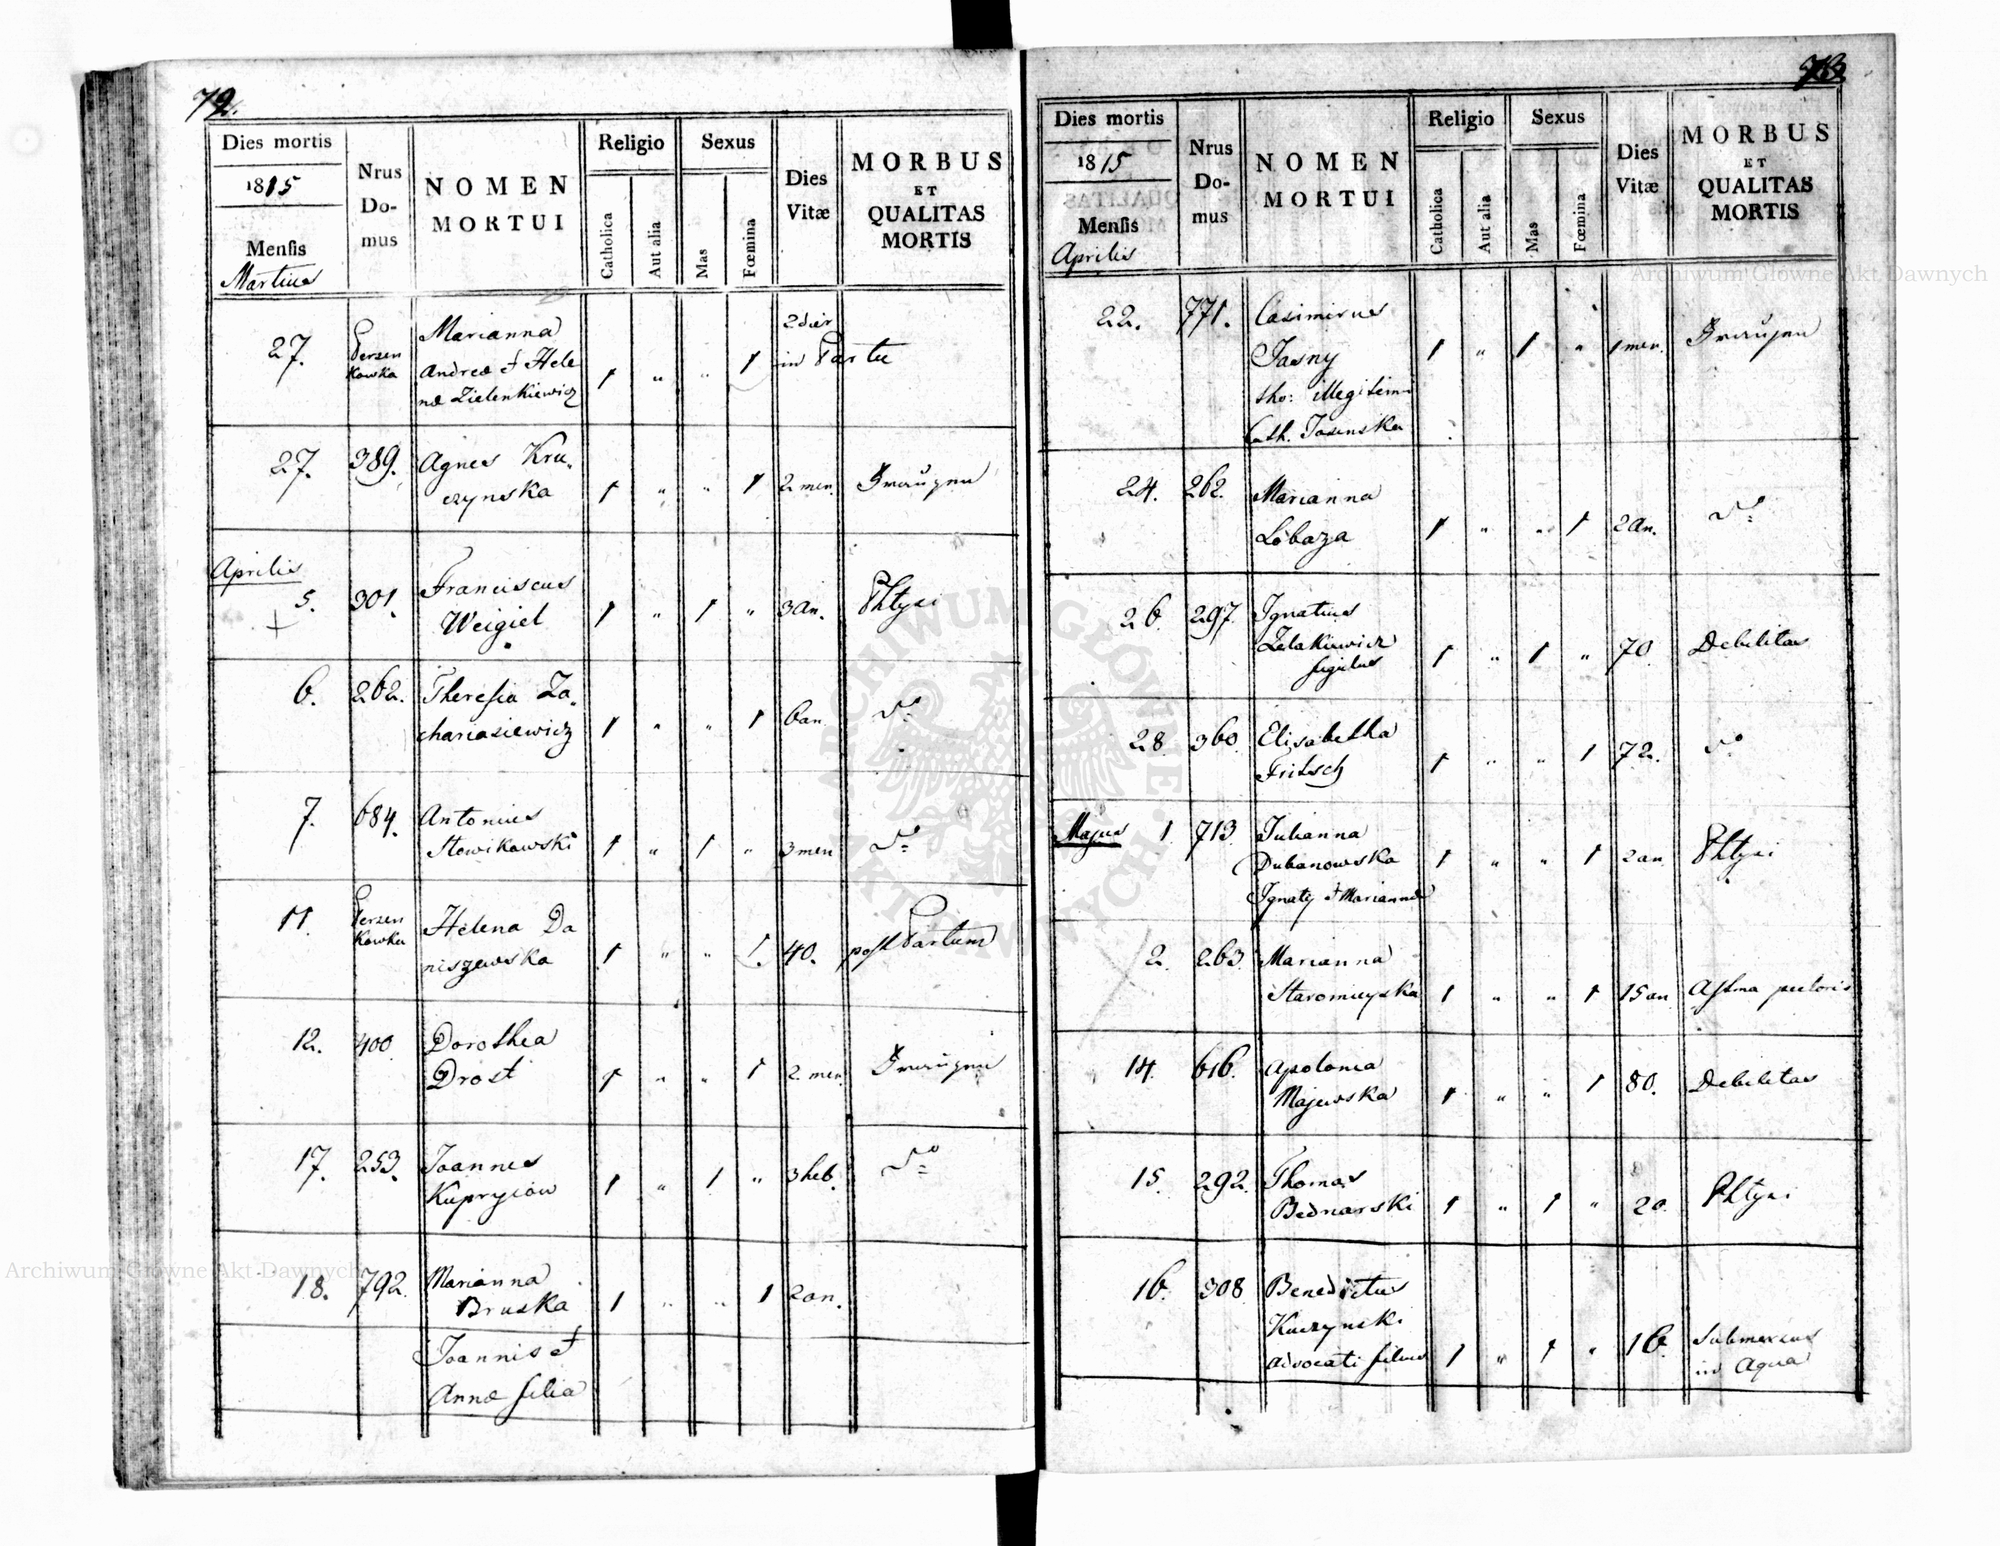 72.
Dies mortis
1815
Mensis
Martius
Nrus Do-mus
NOMEN MORTUI
Religio
Catholica
Aut alia
Sexus
Mas
Fœmina
Dies Vitæ
MORBUS
ET
QUALITAS
MORTIS
27. Persenkowka Marianna 1 " " 1 2 dies in Partu
Andreæ et Hele
næ Zielenkiewicz
27. 389. Agnes Kru- 1 " " 1 2 men.
czynska
Aprilis
5. 301. Franciscus 1 " 1 " 3 an. Phtysi
Weigiel
6. 262. Theresia Za- 1 " " 1 6 an. do
chariasiewicz
7. 684. Antonius 1 " 1 " 3 men do
Słowikowski
11. Persenkowka Helena Da 1 " " 1. 40. post Partum
niszewska
12. 400 Dorothea 1 " " 1 2 men.
Drost
17. 253. Joannes 1 " 1 " 3 heb. do
Kupryciow
18. 792. Marianna 1 " " 1 2 an.
Bruska
Joannis et
Annæ filia
73
Dies mortis
1815
Mensis
Aprilis
Nrus Do-mus
NOMEN MORTUI
Religio
Catholica
Aut alia
Sexus
Mas
Fœmina
Dies Vitæ
MORBUS
ET
QUALITAS
MORTIS
22. 771. Casimirus 1 " 1 " 1 men.
Jasny
tho: illegitim
Cath. Jasinska
24. 262. Marianna 1 " " 1 2 an. do
Łobaza
26. 297. Ignatius 1 " 1 " 70. Debilitas
Zelakiewicz
figulus
28. 360. Elisabetha 1 " " 1 72. do
Fritsch
Majus 1 713 Julianna 1 " " 1 2 an Phtysi
Dubanowska
Ignatij et Mariannæ
2. 263. Marianna 1 " " 1 15 an Astma pectoris
Staromieyska
14. 616. Apolonia 1 " " 1 80. Debilitas
Majewska
15. 292. Thomas 1 " 1 " 20. Phtysi
Bednarski
16. 308 Benedictus 1 " 1 " 16. Submersus
Kuczynski in Aqua
advocati filius
Archiwum Główne Akt Dawnych
Archiwum Główne Akt Dawnych
ARCHIWUM GŁÓWNE AKTÓW DAWNYCH